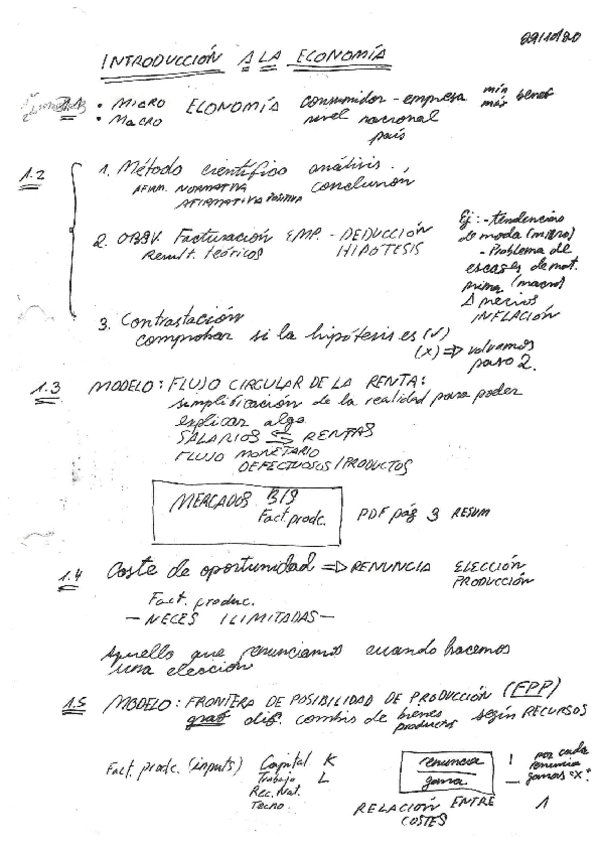 INTRODUCCIÓN A LA ECONOMÍA
1.1 • MICRO ECONOMÍA consumidor - empresa min más benef
• MACRO nivel nacional
país
1.2
1. Método científico análisis.
AFIRM. NORMATIVA conclusión
AFIRMATIVA POSITIVA
2. OBSV. Facturación EMP. - DEDUCCIÓN
Result. teóricos HIPÓTESIS
Ej: - tendencias
de moda (micro)
- Problema de
escases de mat.
prima (macro)
Δ precios
INFLACIÓN
3. Contrastación
comprobar si la hipótesis es (√)
(X) => volvamos
paso 2.
1.3 MODELO: FLUJO CIRCULAR DE LA RENTA:
simplificación de la realidad para poder
esplicar algo
SALARIOS ⇆ RENTAS
FLUJO MONETARIO
DEFECTUOSOS/PRODUCTOS
MERCADOS B/S
Fact. prodc.
PDF pág 3 RESUM
1.4 Coste de oportunidad => RENUNCIA ELECCIÓN
PRODUCCIÓN
Fact. produc.
- NECES ILIMITADAS -
Aquello que renunciamos cuando hacemos
una elección
1.5 MODELO: FRONTERA DE POSIBILIDAD DE PRODUCCIÓN (FPP)
graf dif. combis de bienes según RECURSOS
productos
Fact. prodc. (inputs) Capital K
Trabajo L
Rec. Nat.
Tecno.
renuncia
gama
! por cada
renuncia
— gamas "X".
RELACIÓN ENTRE 1
COSTES